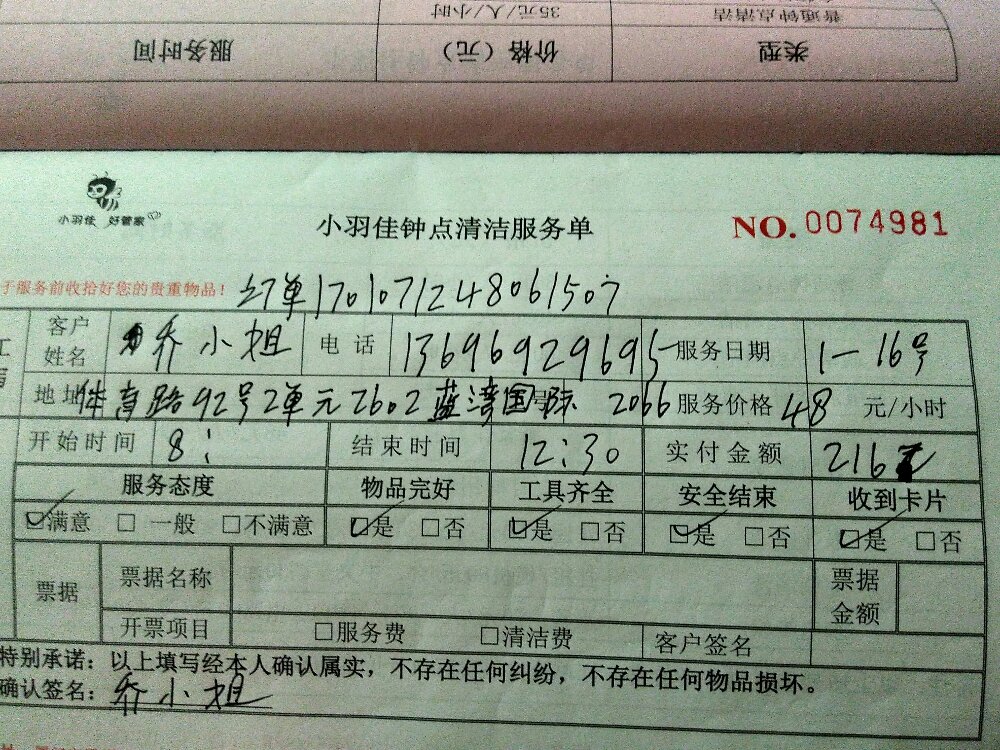 普通钟点清洁 35元/人/小时
类型 价格（元） 服务时间
小羽佳 好管家
小羽佳钟点清洁服务单 NO. 0074981
于服务前收拾好您的贵重物品！ 订单1701071248061507
客户姓名 乔小姐 电话 13696929695 服务日期 1-16号
地址 体育路92号2单元2602蓝湾国际 2066 服务价格 48 元/小时
开始时间 8: 结束时间 12:30 实付金额 216元
服务态度 物品完好 工具齐全 安全结束 收到卡片
☑满意 □一般 □不满意 ☑是 □否 ☑是 □否 ☑是 □否 ☑是 □否
票据 票据名称 票据金额
开票项目 □服务费 □清洁费 客户签名
特别承诺：以上填写经本人确认属实，不存在任何纠纷，不存在任何物品损坏。
确认签名：乔小姐